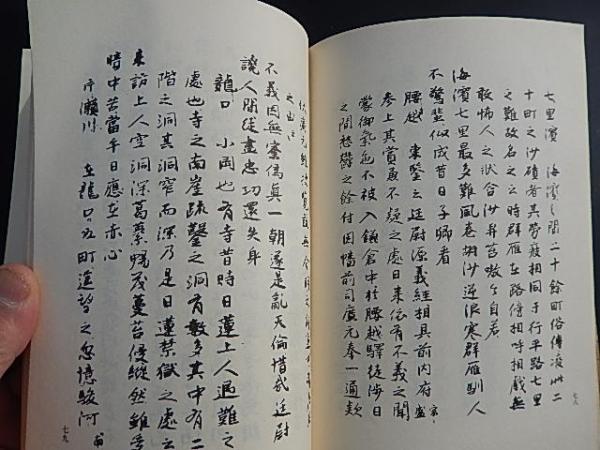 七里濱 海濱之間二十餘町俗傳凌卅二
十町之沙磧者其勞疲相同于行平路七里
之難故名之云時群雁在路傍相呼相戲無
敢怖人之狀合沙弁苔嗷々自若
海濱七里最多難風卷胡沙逆浪寒群雁馴人
不驚起似成昔日子卿看
腰越 東鑒云廷尉源義經相具前内府宗盛
參上其賞兼不疑之處日來依有不義之聞
蒙御氣色不被入鎌倉中於腰越驛徒渉日
之間愁欝之餘付因幡前司廣元奉一通款
七八
之由云云
不義因無蜜偽真一朝遂是亂天倫惜哉廷尉
讒人間徒盡忠功還失身
龍口 小岡也有寺昔時日蓮上人遇難之
處也寺之南崖疏鑿之洞有數多其中有二
階之洞其洞窄而深乃是日蓮禁獄之處云
來訪上人空洞深葛藟幡茂蔓苔侵縱然雖
暗中苦當午日應在赤心
片瀬川 在龍口口五町遙望之忽憶駿河
七九